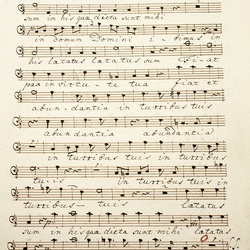 sum in his quæ dicta sunt mihi
in domum Domini ibimus in
his lætatus lætatus sum Fiat
pax in virtute tua fiat et
abundantia in turribus tuis
abundantia abundantia
in turribus tuis in turribus
tuis in turribus tuis in
turribus tuis lætatus
sum in his quæ dicta sunt mihi lætatus